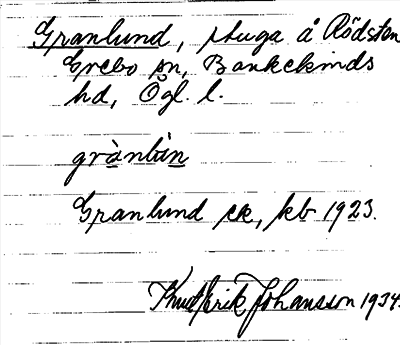 Granlund, stuga å Rödsten
Grebo sn, Bankekinds
hd, Ögl. l.
grànlùn
Granlund ek, kb 1923.
Knut Erik Johansson 1934.